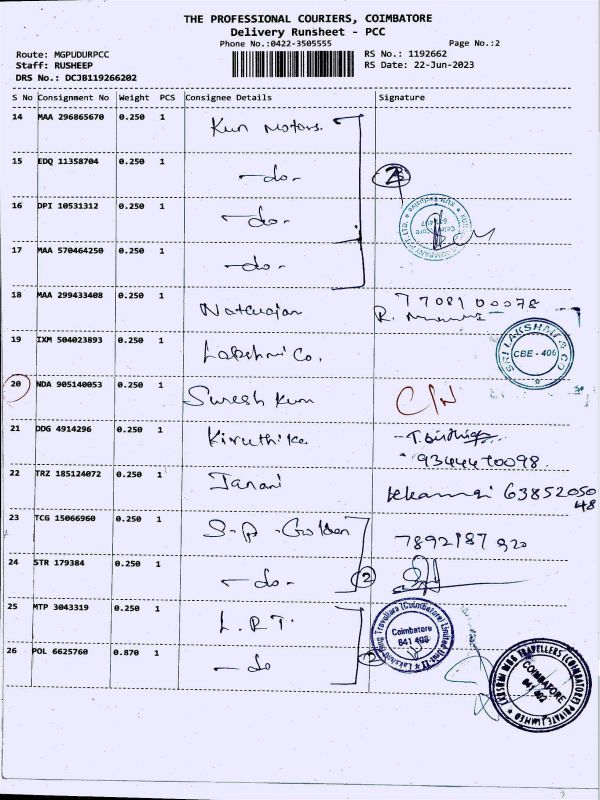 THE PROFESSIONAL COURIERS, COIMBATORE
Delivery Runsheet - PCC
Phone No.:0422-3505555
Page No.:2
Route: MGPUDURPCC
RS No.: 1192662
Staff: RUSHEEP
RS Date: 22-Jun-2023
DRS No.: DCJB119266202
S No Consignment No Weight PCS Consignee Details Signature
14 MAA 296865670 0.250 1 Kun Motors.
15 EDQ 11358704 0.250 1 -do-
16 DPI 10531312 0.250 1 -do-
17 MAA 570464250 0.250 1 -do-
18 MAA 299433408 0.250 1 77081 00078
R.
19 IXM 504023893 0.250 1 Lakshmi Co.
SRI LAKSHMI & CO
CBE - 406
20 NDA 905140053 0.250 1 Suresh Kum C/N
21 DDG 4914296 0.250 1 Kiruthika
9344470098
22 TRZ 185124072 0.250 1 Janani 63852050
48
23 TCG 15066960 0.250 1 S-P-Golden 7892187920
24 STR 179384 0.250 1 -do- 2
25 MTP 3043319 0.250 1 L.R.T.
Coimbatore
26 POL 6625760 0.870 1 -do
COIMBATORE
641 402